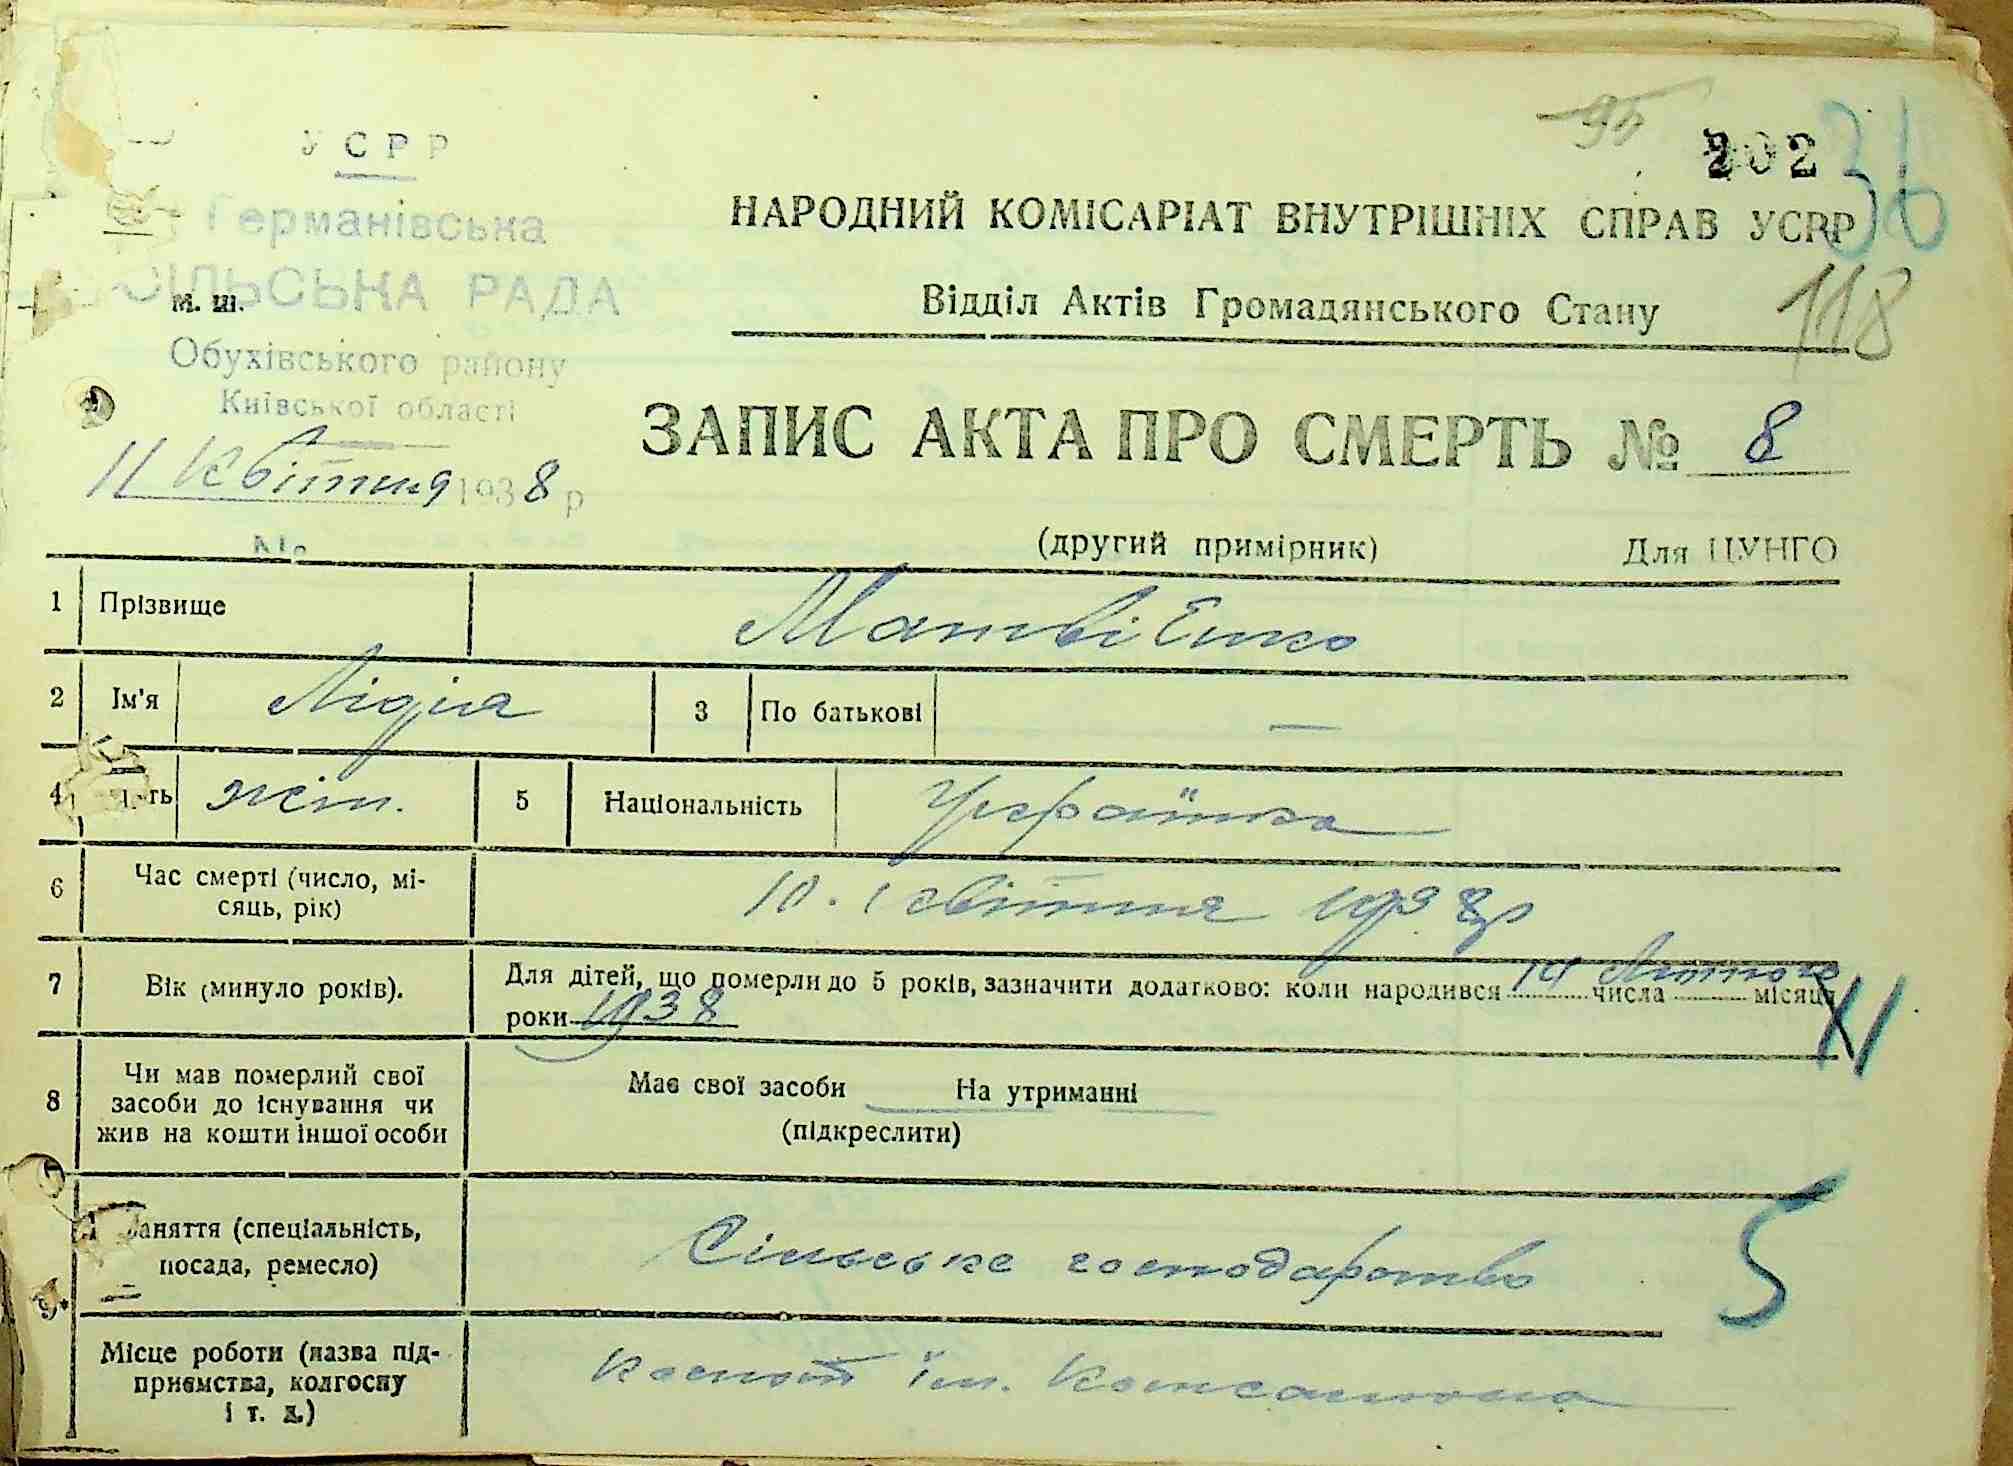 95
202
36
УСРР
Германівська
СІЛЬСЬКА РАДА
м. ш.
Обухівського району
Київської області
11 Квітня 1938 р
№
НАРОДНИЙ КОМІСАРІАТ ВНУТРІШНІХ СПРАВ УСРР
Відділ Актів Громадянського Стану
118
ЗАПИС АКТА ПРО СМЕРТЬ № 8
(другий примірник) Для ЦУНГО
1 Прізвище Матвієнко
2 Ім'я Лідія 3 По батькові —
4 жін. 5 Національність Українка
6 Час смерті (число, мі-
сяць, рік) 10. квітня 1938р
7 Вік (минуло років). Для дітей, що померли до 5 років, зазначити додатково: коли народився 14 числа Лютого місяця
роки 1938
8 Чи мав померлий свої
засоби до існування чи
жив на кошти іншої особи
Має свої засоби На утриманні
(підкреслити)
9. Заняття (спеціальність,
посада, ремесло) Сільське господарство
5
Місце роботи (назва під-
приємства, колгоспу
і т. д.) ім.